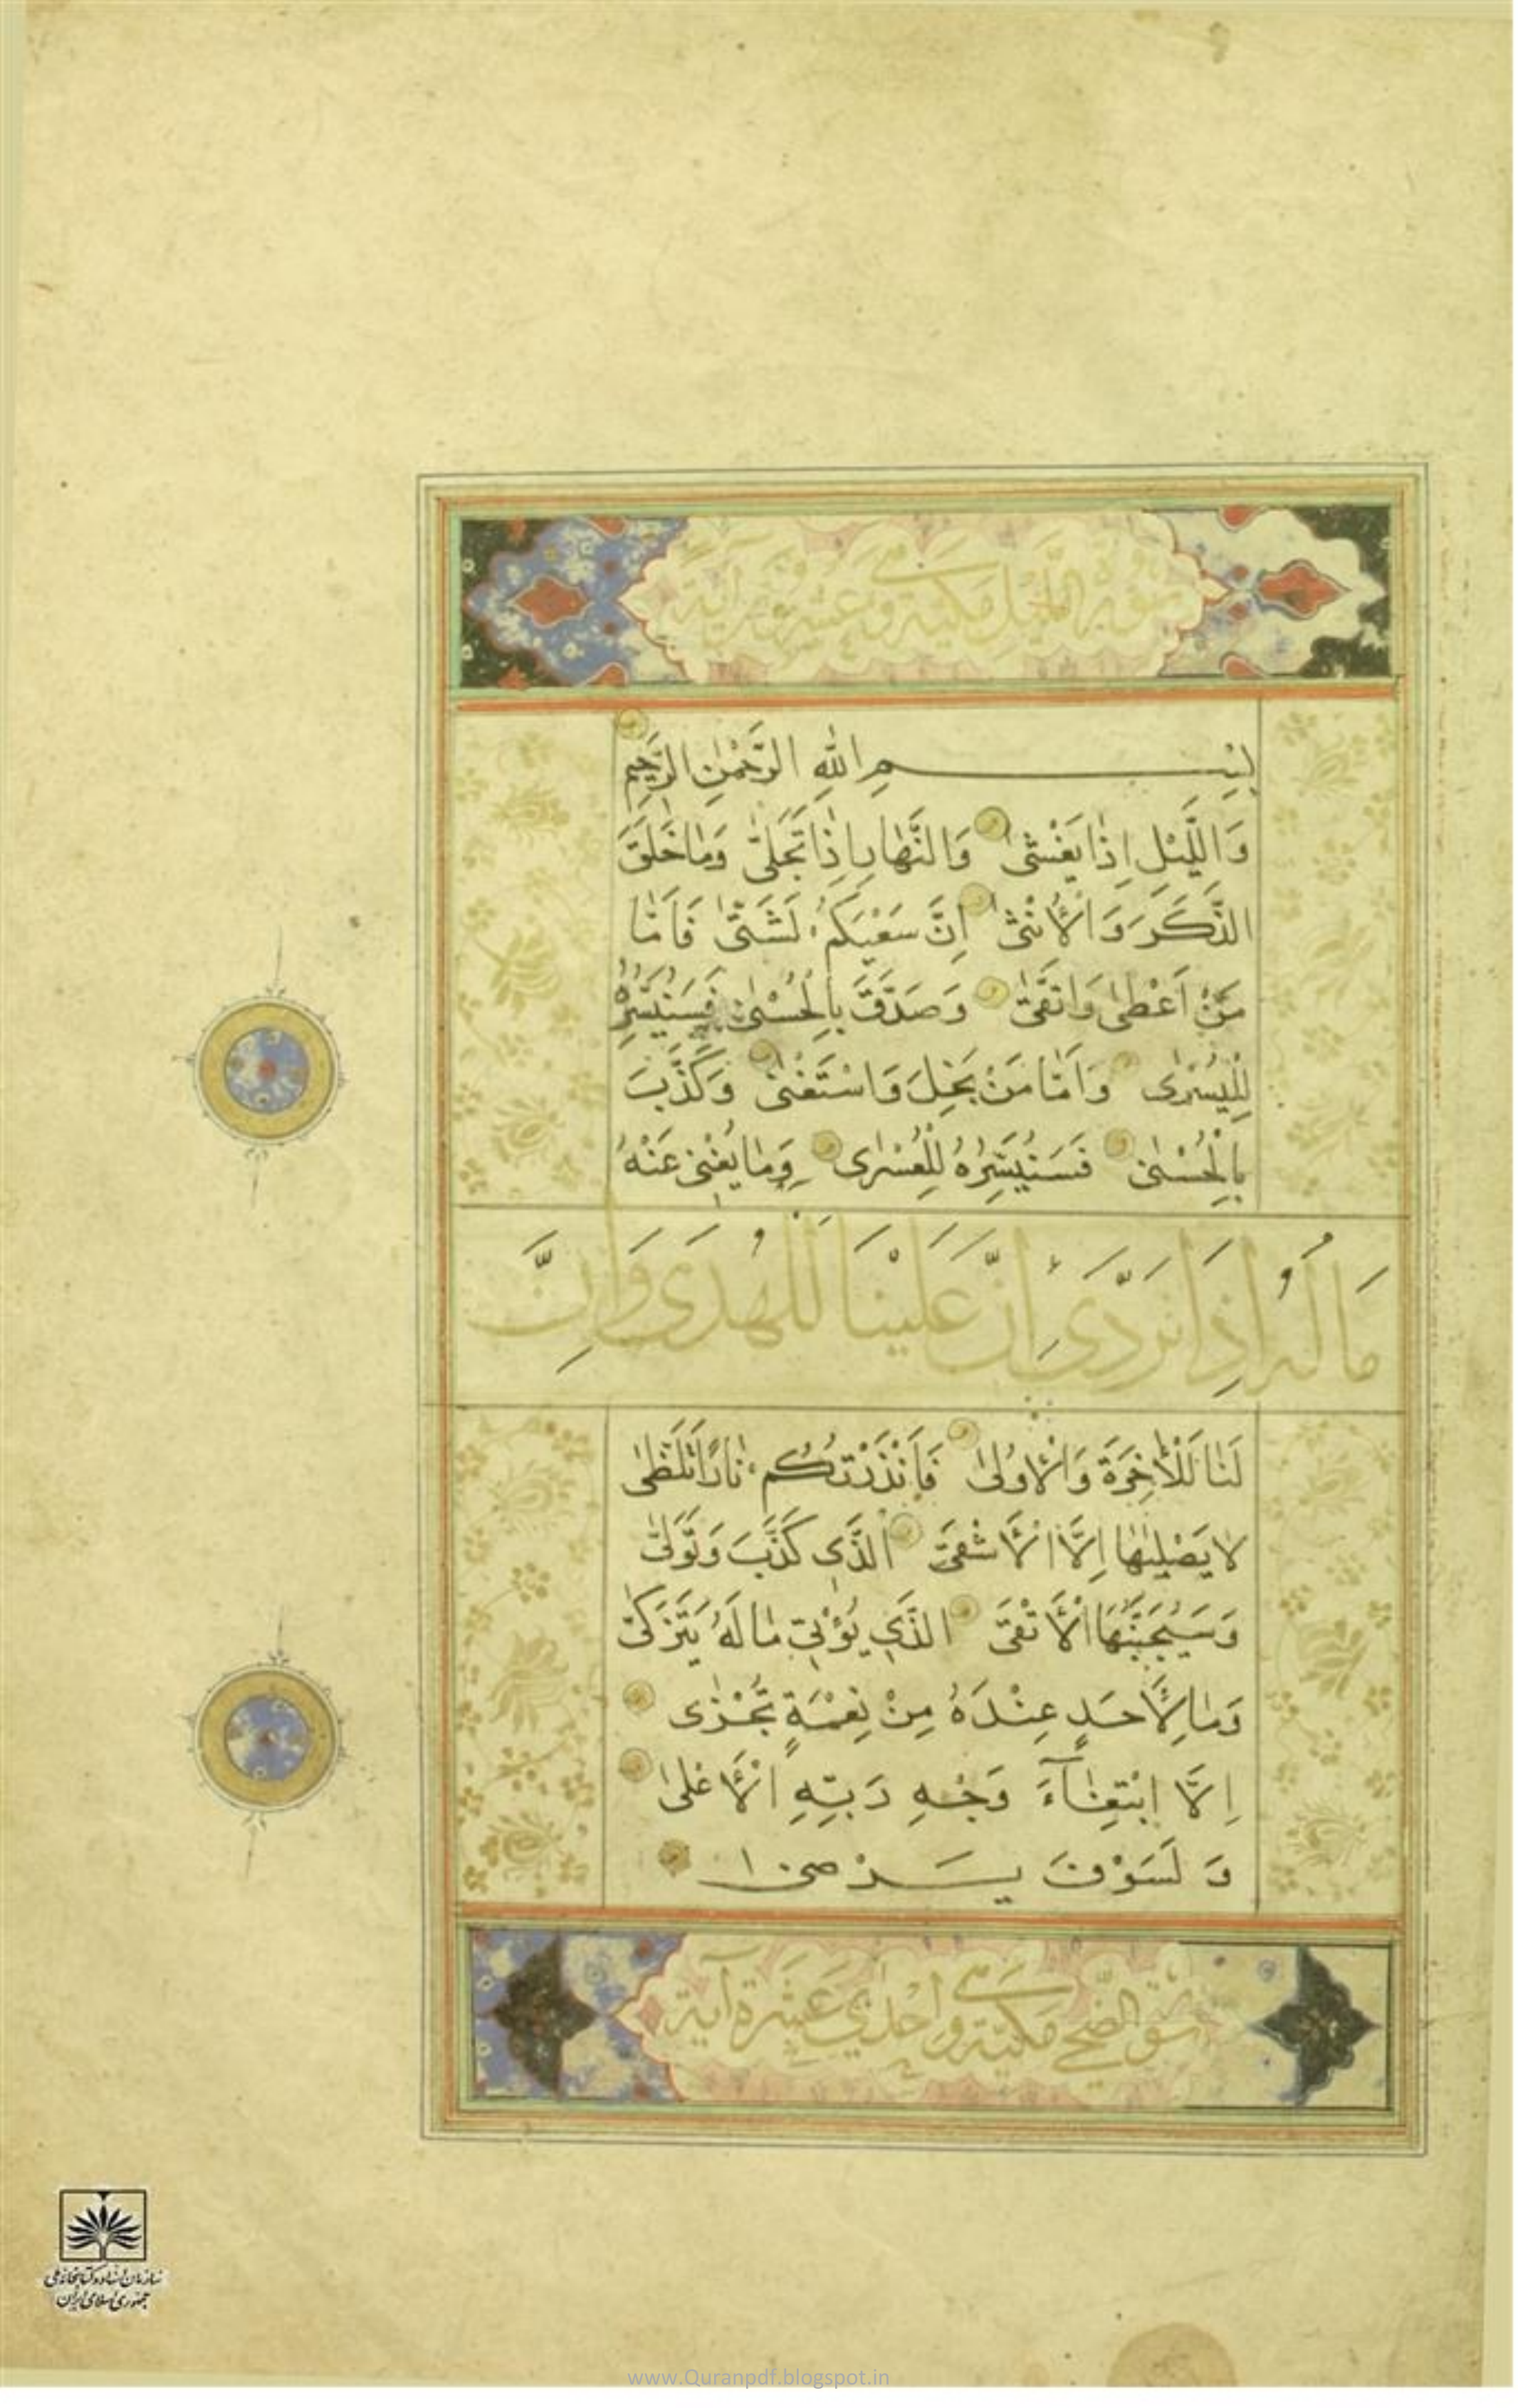 سورة الليل مكية وعشرون آية
بِسْمِ اللّٰهِ الرَّحْمٰنِ الرَّحِيمِ
وَاللَّيْلِ اِذٰا يَغْشىٰ وَالنَّهٰارِ اِذٰا تَجَلىّٰ وَمٰا خَلَقَ
الذَّكَرَ وَالْاُنْثىٰ اِنَّ سَعْيَكُمْ لَشَتىّٰ فَاَمّٰا
مَنْ اَعْطىٰ وَاتَّقىٰ وَصَدَّقَ بِالْحُسْنىٰ فَسَنُيَسِّرُهُ
لِلْيُسْرىٰ وَاَمّٰا مَنْ بَخِلَ وَاسْتَغْنىٰ وَكَذَّبَ
بِالْحُسْنىٰ فَسَنُيَسِّرُهُ لِلْعُسْرىٰ وَمٰا يُغْنِى عَنْهُ
مَالُهُ اِذَا تَرَدَّى اِنَّ عَلَيْنَا لَلْهُدَى وَاِنَّ
لَنٰا لَلْاٰخِرَةَ وَالْاُولىٰ فَاَنْذَرْتُكُمْ نٰارًا تَلَظّىٰ
لا يَصْلٰيهٰا اِلَّا الْاَشْقىَ الَّذِى كَذَّبَ وَتَوَلىّٰ
وَسَيُجَنَّبُهَا الْاَتْقىَ الَّذِى يُؤْتِى مٰالَهُ يَتَزَكىّٰ
وَمٰا لِاَحَدٍ عِنْدَهُ مِنْ نِعْمَةٍ تُجْزٰى
اِلَّا ابْتِغٰآءَ وَجْهِ رَبِّهِ الْاَعْلىٰ
وَلَسَوْفَ يَرْضىٰ
سورة الضحى مكية واحدى عشرة آية
سازمان اسناد و کتابخانه ملی
جمهوری اسلامی ایران
www.Quranpdf.blogspot.in